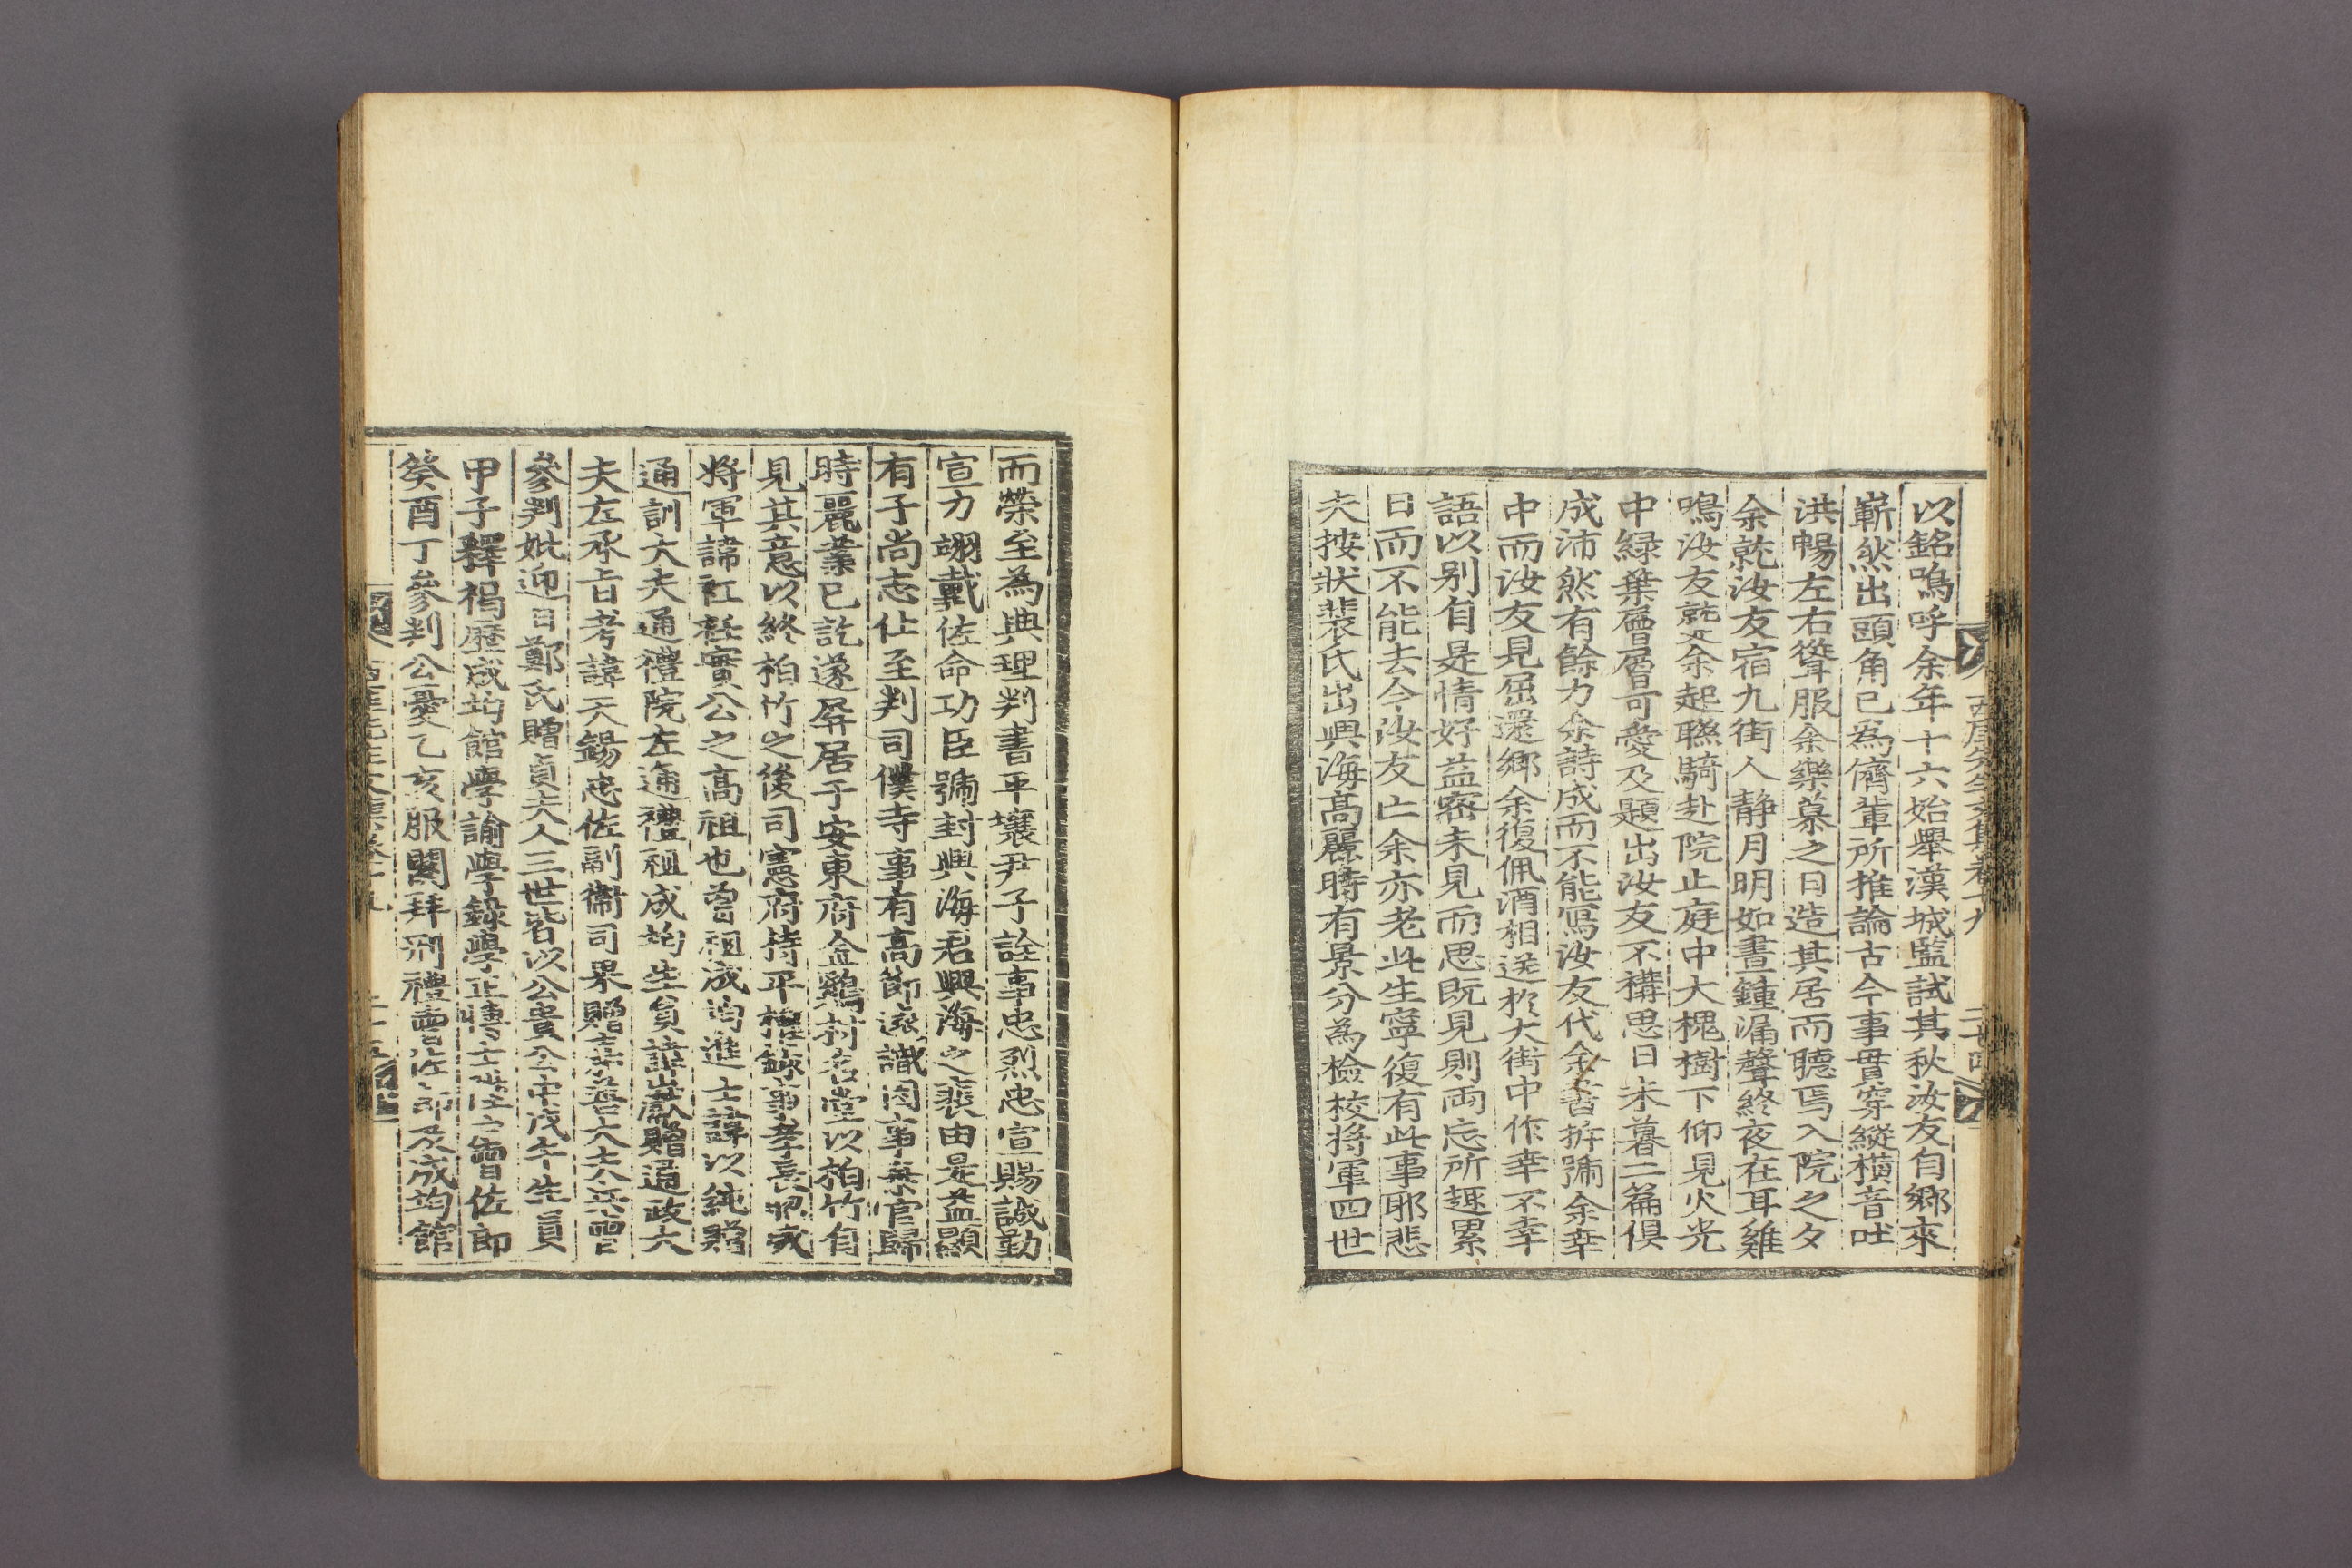 以銘嗚呼余年十六始舉漢城監試其秋汝友自鄉來
嶄然出頭角已爲儕輩所推論古今事貫穿縱橫音吐
洪暢左右聳服余樂慕之日造其居而聽焉入院之夕
余就汝友宿九街人静月明如晝鍾漏聲終夜在耳雞
鳴汝友蹴余起聯騎赴院止庭中大槐樹下仰見火光
中緑葉層層可愛及題出汝友不搆思日未暮二篇俱
成沛然有餘力余詩成而不能寫汝友代余書拆號余幸
中而汝友見屈還鄉余復佩酒相送於大街中作幸不幸
語以别自是情好益密未見而思既見則両忘所趣累
日而不能去今汝友亡余亦老此生寧復有此事耶悲
夫按狀裴氏出興海高麗時有景分為檢校将軍四世
西厓先生文集卷十九
而榮至為典理判書平壤尹子詮事忠烈忠宣賜誠勤
宣力翊戴佐命功臣號封興海君興海之裴由是益顯
有子尚志仕至判司僕寺事有高節遠識因事棄官歸
時麗業已訖遂屏居于安東府金鷄村名堂以柏竹自
見其意以終柏竹之後司憲府持平權錄事孝長
將軍諱杠實公之高祖也曾祖成均進士諱以純贈
通訓大夫通禮院左通禮祖成均生員諱巘贈通政大
夫左承旨考諱天錫忠佐副衛司果贈嘉善大夫兵曹
參判妣迎日鄭氏贈貞夫人三世皆以公貴公中戊午生員
甲子釋褐歷成均館學諭學錄學正博士曹佐郎
癸酉丁參判公憂乙亥服闋拜刑禮曹佐郎及成均館